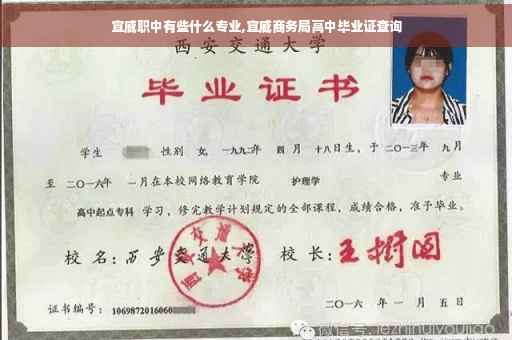 宜威职中有些什么专业,宜威商务局高中毕业证查询
西安交通大学
毕业证书
学生 性别 女, 一九九二年 四月 十八日生, 于 二〇一三年 九月
至 二〇一六年 一月在本校网络教育学院 护理学 专业
高中起点专科 学习, 修完教学计划规定的全部课程, 成绩合格, 准予毕业。
校名: 西安交通大学 校长: 王树国
西安交通大学
证书编号: 1069872016060
二〇一六年 一月 五日
微信号: jiezhinuiyoujiao